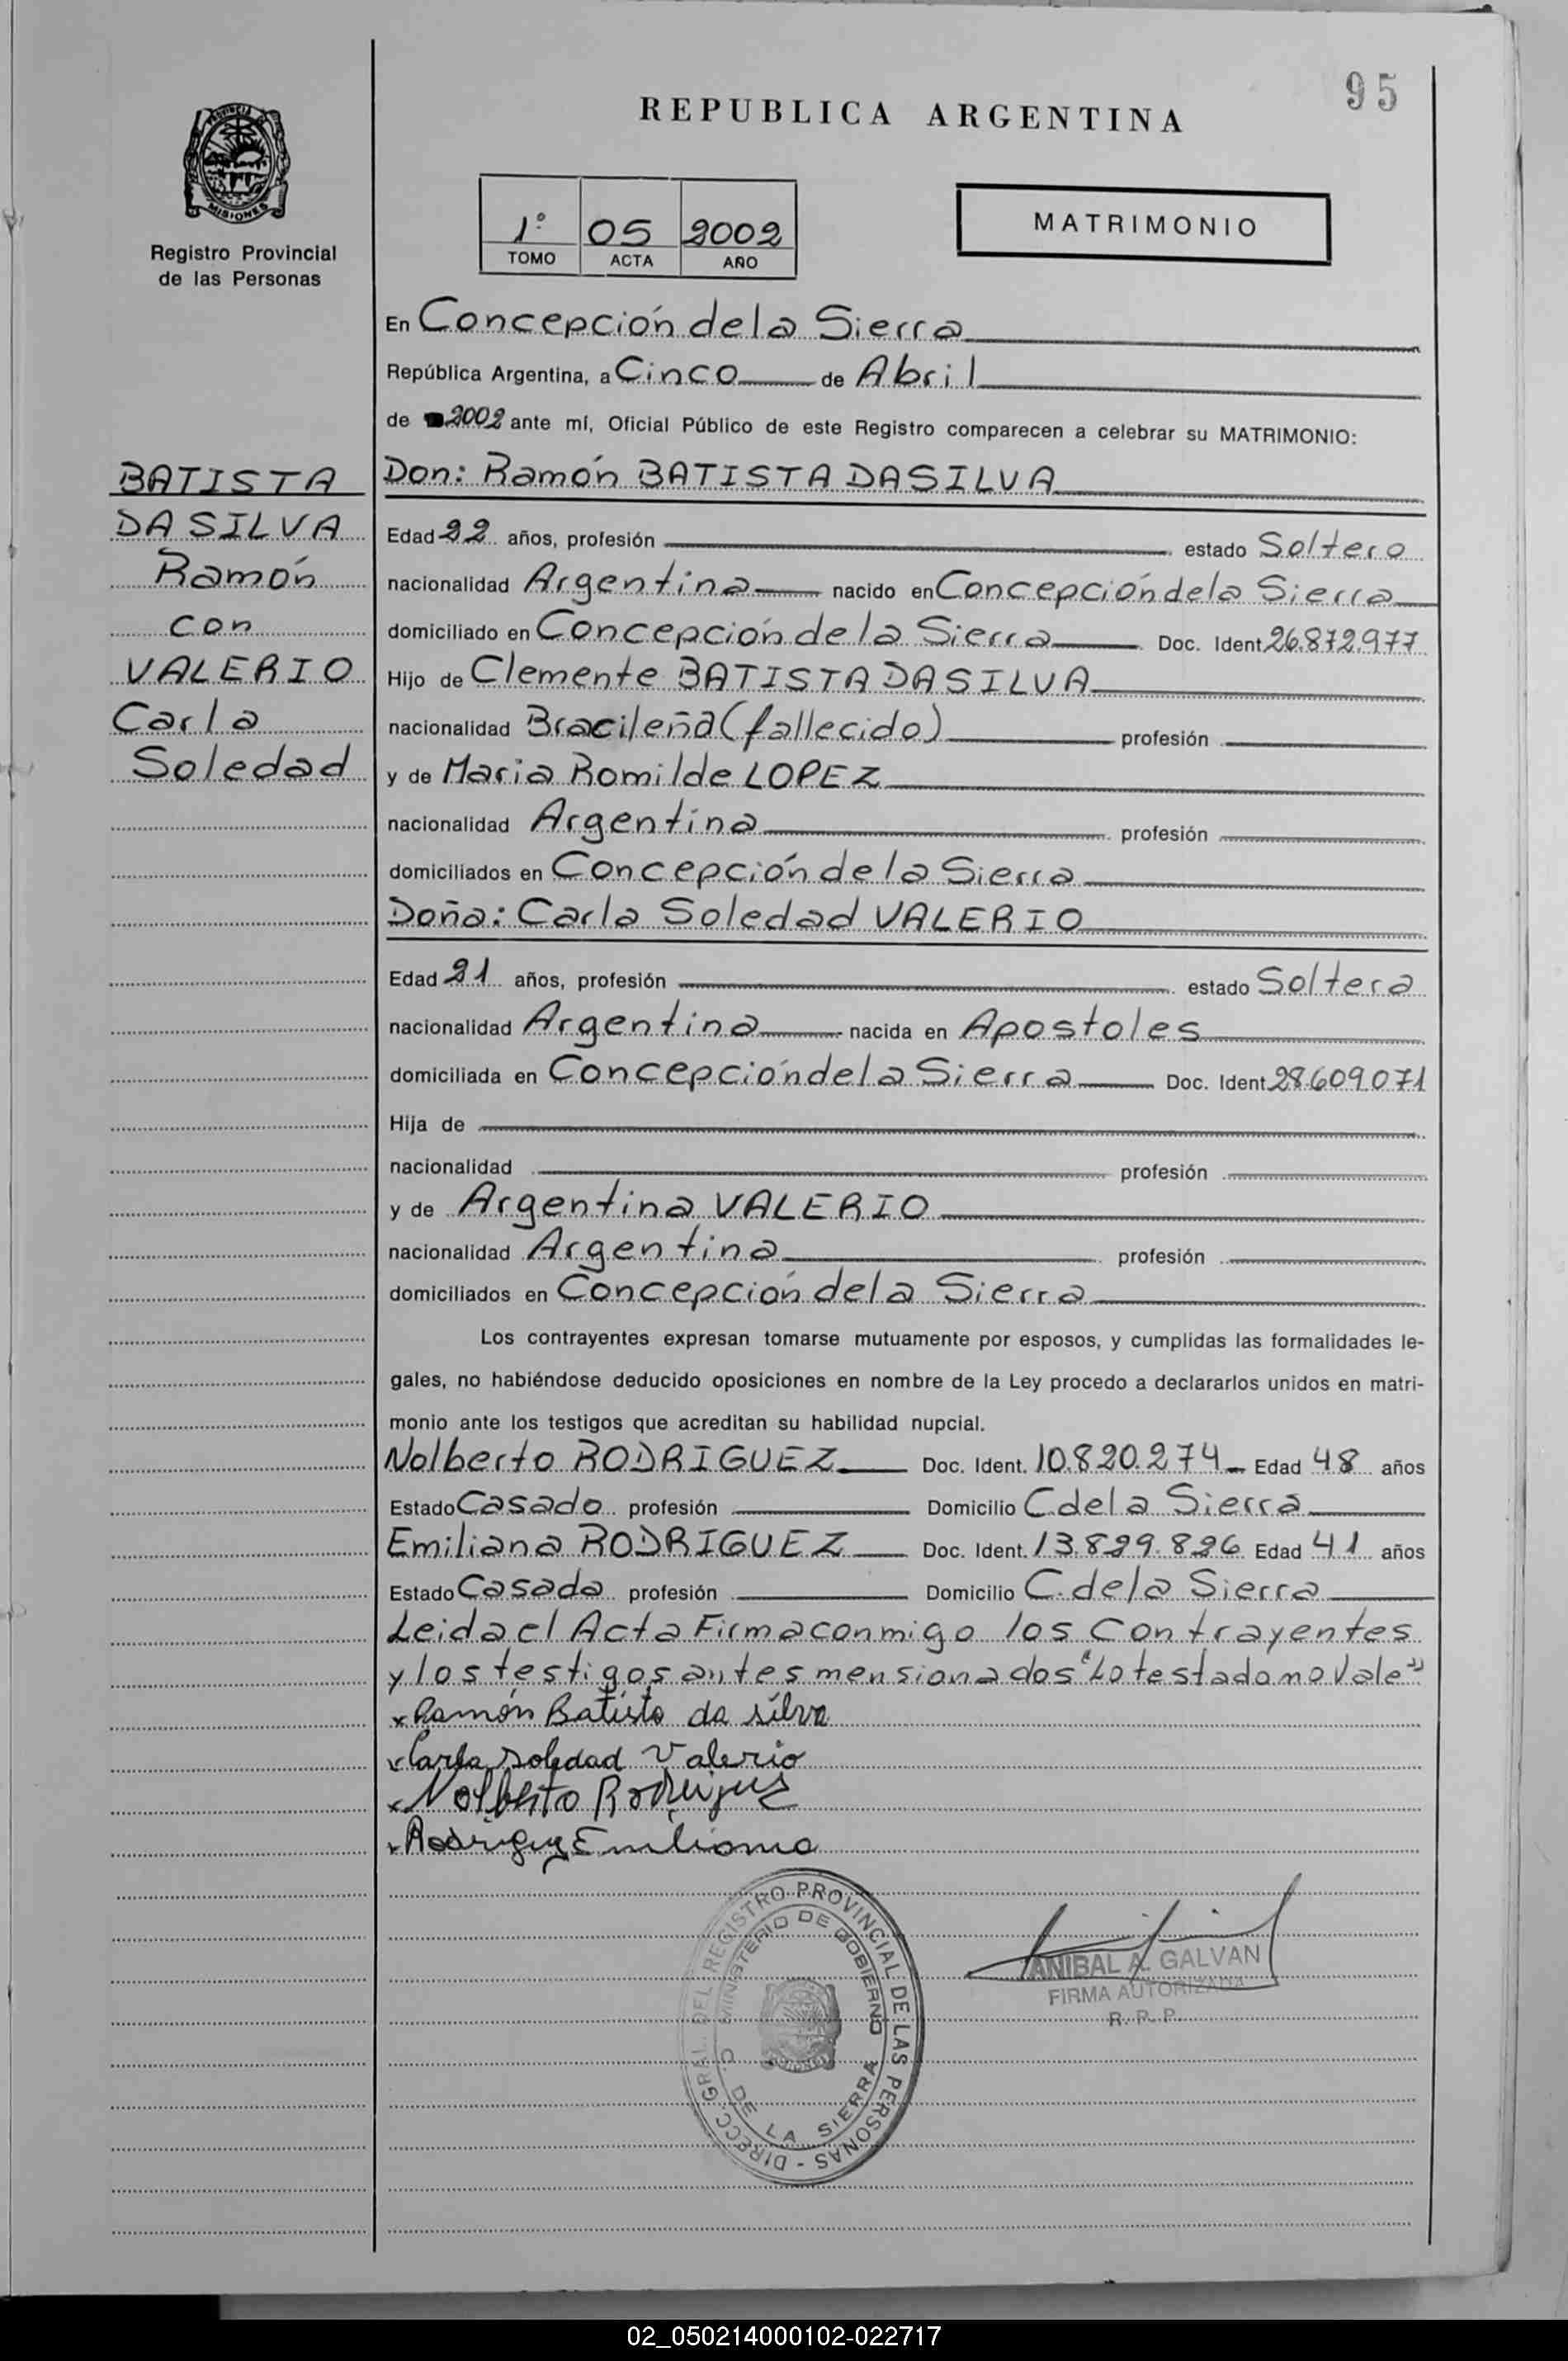 95
REPUBLICA ARGENTINA
PROVINCIA DE
MISIONES
Registro Provincial
de las Personas
1º 05 2002
TOMO ACTA AÑO
MATRIMONIO
En Concepción de la Sierra
República Argentina, a Cinco de Abril
de 2002 ante mí, Oficial Público de este Registro comparecen a celebrar su MATRIMONIO:
BATISTA
DA SILVA
Ramón
con
VALERIO
Carla
Soledad
Don: Ramón BATISTA DA SILVA
Edad 22 años, profesión estado Soltero
nacionalidad Argentina nacido en Concepción de la Sierra
domiciliado en Concepción de la Sierra Doc. Ident 26.872.977
Hijo de Clemente BATISTA DA SILVA
nacionalidad Bracileña (fallecido) profesión
y de Maria Romilde LOPEZ
nacionalidad Argentina profesión
domiciliados en Concepción de la Sierra
Doña: Carla Soledad VALERIO
Edad 21 años, profesión estado Soltera
nacionalidad Argentina nacida en Apostoles
domiciliada en Concepción de la Sierra Doc. Ident 28.609.071
Hija de
nacionalidad profesión
y de Argentina VALERIO
nacionalidad Argentina profesión
domiciliados en Concepción de la Sierra
Los contrayentes expresan tomarse mutuamente por esposos, y cumplidas las formalidades le-
gales, no habiéndose deducido oposiciones en nombre de la Ley procedo a declararlos unidos en matri-
monio ante los testigos que acreditan su habilidad nupcial.
Nolberto RODRIGUEZ Doc. Ident. 10.820.274 Edad 48 años
Estado Casado profesión Domicilio C de la Sierra
Emiliana RODRIGUEZ Doc. Ident. 13.829.826 Edad 41 años
Estado Casada profesión Domicilio C. de la Sierra
Leida el Acta Firma conmigo los Contrayentes
y los testigos antes mensionados "Lo testado no Vale"
x Ramón Batista da silva
x Carla Soledad Valerio
x Nolberto Rodriguez
x Rodriguez Emiliana
DIRECC. GRAL. DEL REGISTRO PROVINCIAL DE LAS PERSONAS -
MINISTERIO DE GOBIERNO
C. DE LA SIERRA
ANIBAL A. GALVAN
FIRMA AUTORIZADA
R. P. P.
02_050214000102-022717